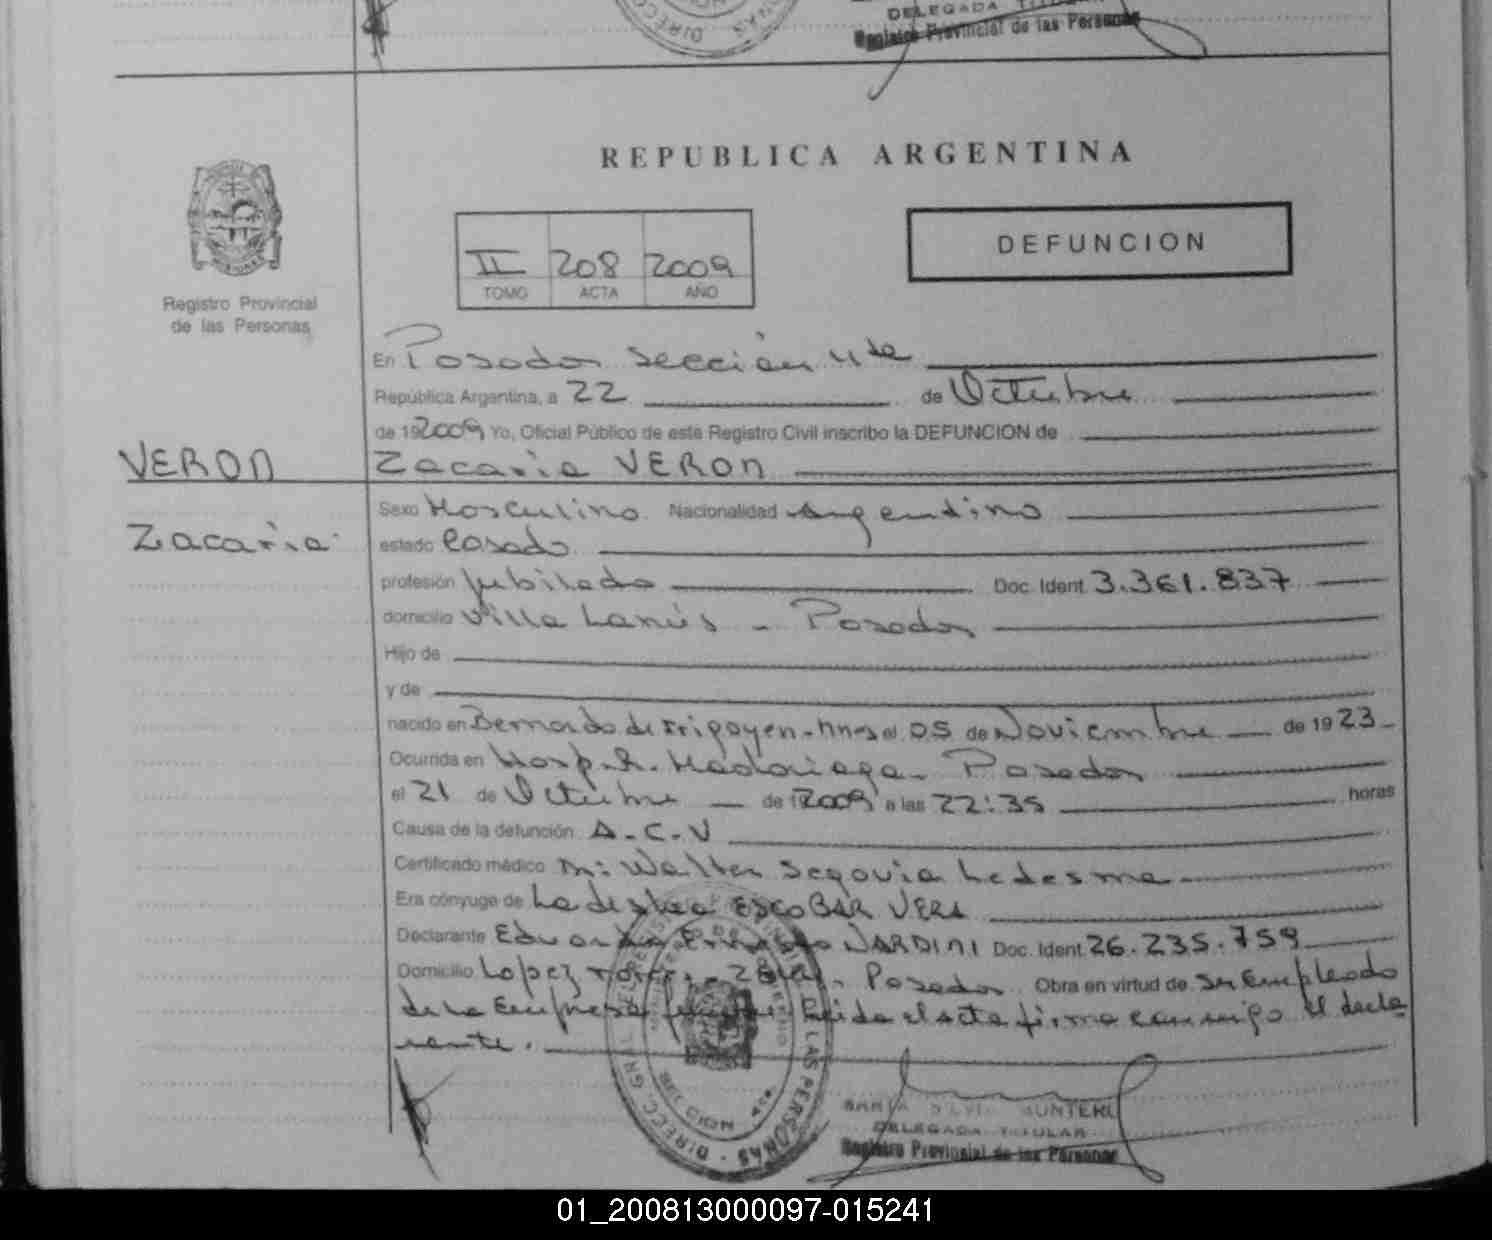 DELEGADA TITULAR
Registro Provincial de las Personas
REPUBLICA ARGENTINA
II 208 2009
TOMO ACTA AÑO
DEFUNCION
Registro Provincial
de las Personas
En Posadas Sección 4ta
República Argentina, a 22 de Octubre
de 19 2009 Yo, Oficial Público de este Registro Civil inscribo la DEFUNCION de
VERON
Zacaria VERON
Zacaria
Sexo Masculino Nacionalidad Argentino
estado Casado
profesión Jubilado Doc. Ident. 3.361.837
domicilio Villa Lanús - Posadas
Hijo de
y de
nacido en Bernardo de Irigoyen - Mnes el 05 de Noviembre de 1923
Ocurrida en Hosp. R. Madariaga - Posadas
el 21 de Octubre de 12009 a las 22:35 horas
Causa de la defunción A.C.V
Certificado médico Dr: Walter Segovia Ledesma
Era cónyuge de Ladislaa ESCOBAR VERA
Declarante Eduardo Ernesto NARDINI Doc. Ident. 26.235.759
Domicilio Lopez Torres - Posadas Obra en virtud de ser Empleado
de la Empresa Leida el acta firma conmigo el decla
rante.
DELEGADA TITULAR
Registro Provincial de las Personas
DIRECC. GR LAS PERSONAS
01_200813000097-015241